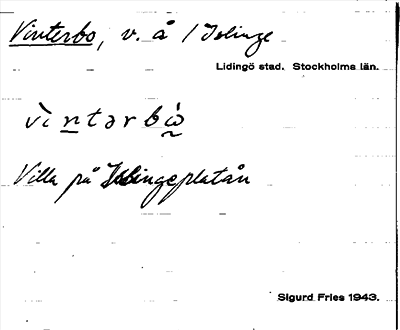 Vinterbo, v. å / Islinge
Lidingö stad. Stockholms län.
vìntərbὼ
Villa på Islingeplatån
Sigurd Fries 1943.